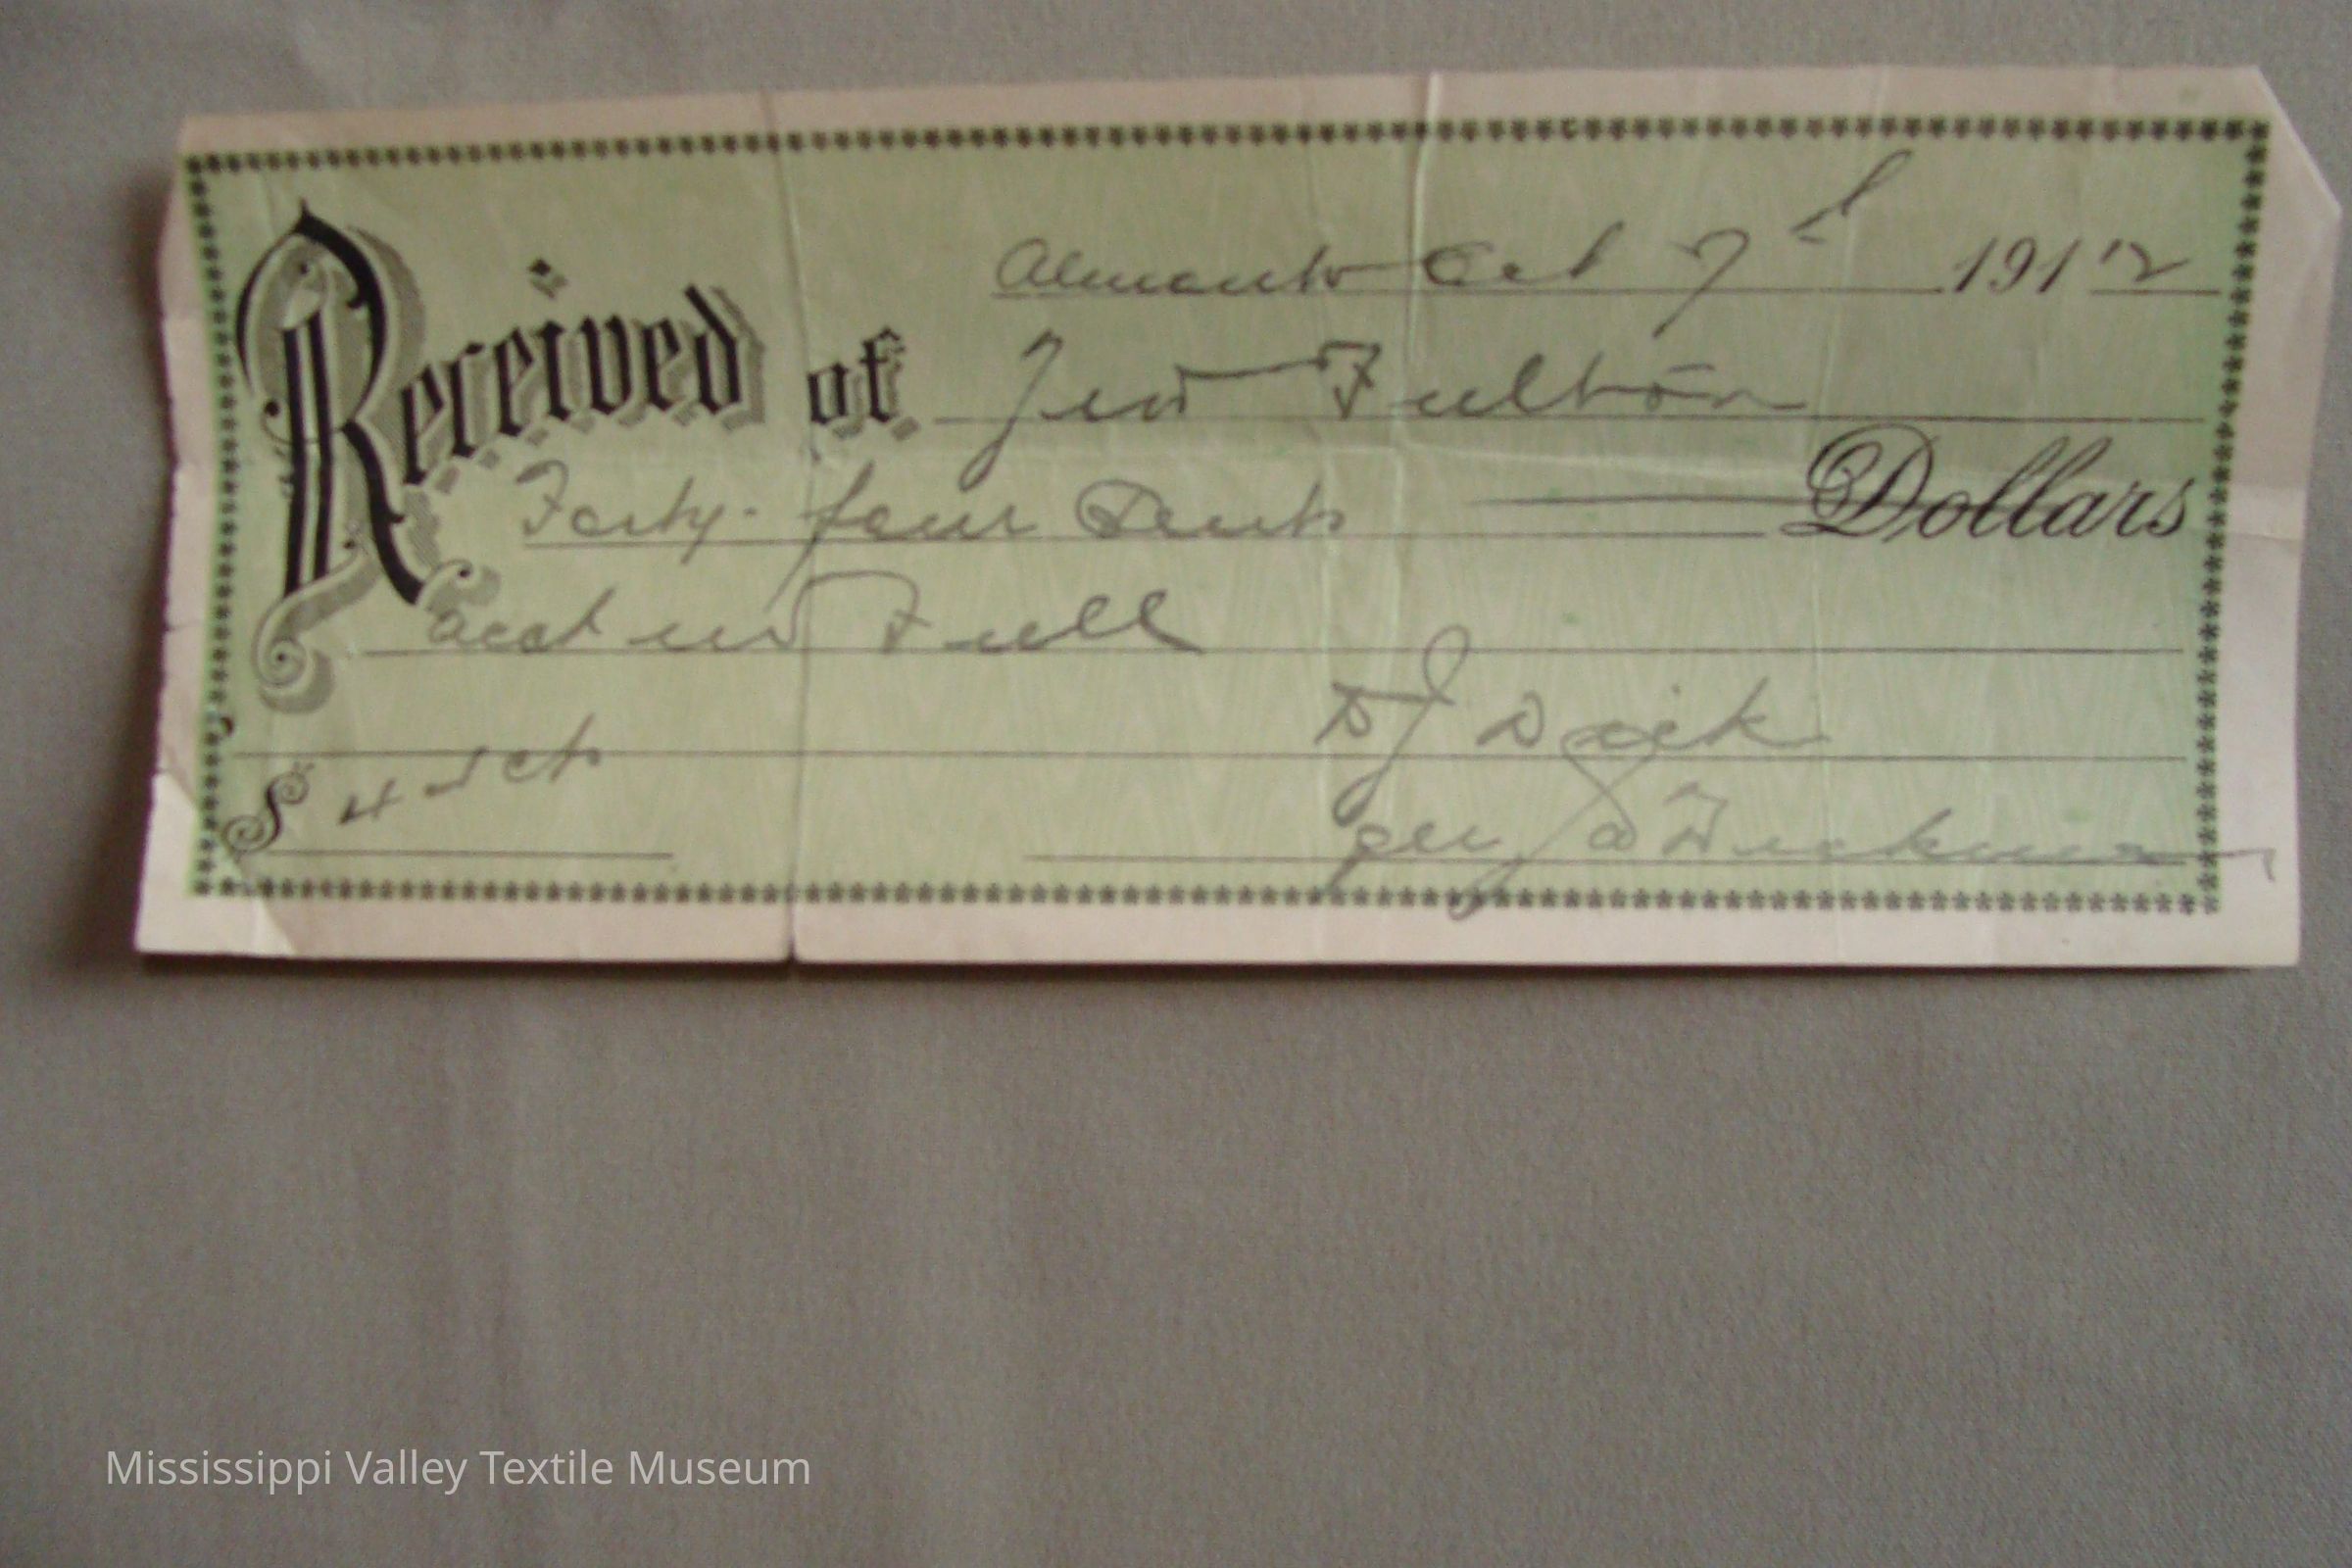 Almonte Oct 7th 1912
Received of Jno Fulton
Forty-four Cents Dollars
acct in Full
D J Dick
$ 44 cts
per J a
Mississippi Valley Textile Museum